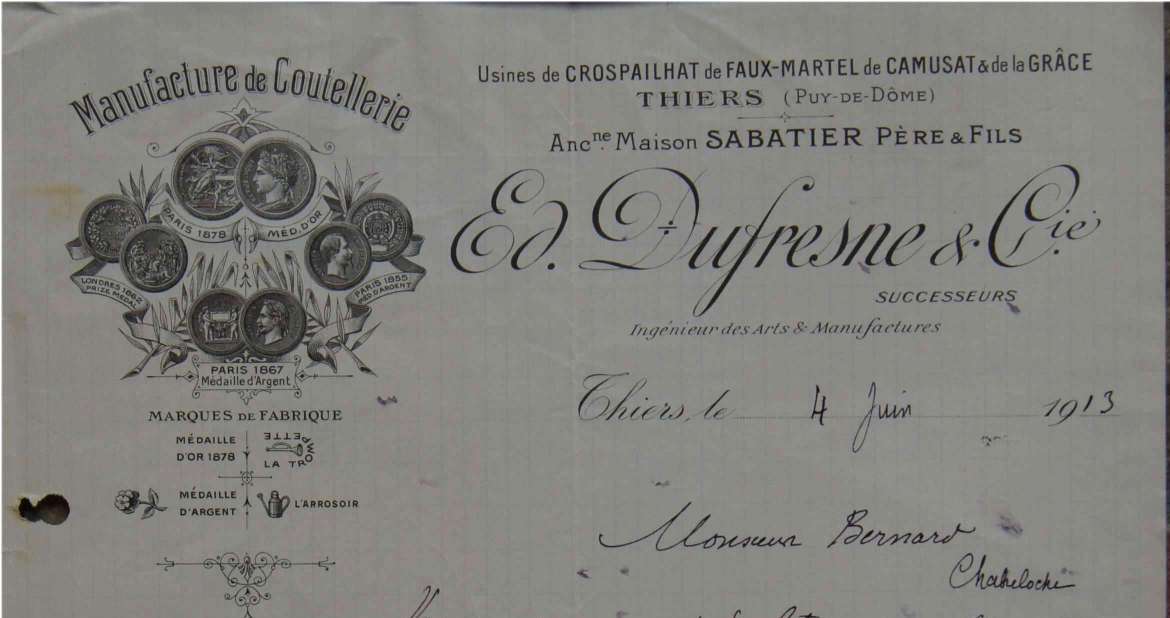 Manufacture de Coutellerie
PARIS 1878 MÉD. D'OR
LONDRES 1862
PRIZE MEDAL
PARIS 1855
MÉD D'ARGENT
PARIS 1867
Médaille d'Argent
MARQUES DE FABRIQUE
MÉDAILLE
D'OR 1878
LA TROMPETTE
MÉDAILLE
D'ARGENT
L'ARROSOIR
Usines de CROSPAILHAT de FAUX-MARTEL de CAMUSAT & de la GRÂCE
THIERS (PUY-DE-DÔME)
Ancne. Maison SABATIER PÈRE & FILS
Ed. Dufresne & Cie
SUCCESSEURS
Ingénieur des Arts & Manufactures
Thiers, le 4 Juin 1913
Monsieur Bernard